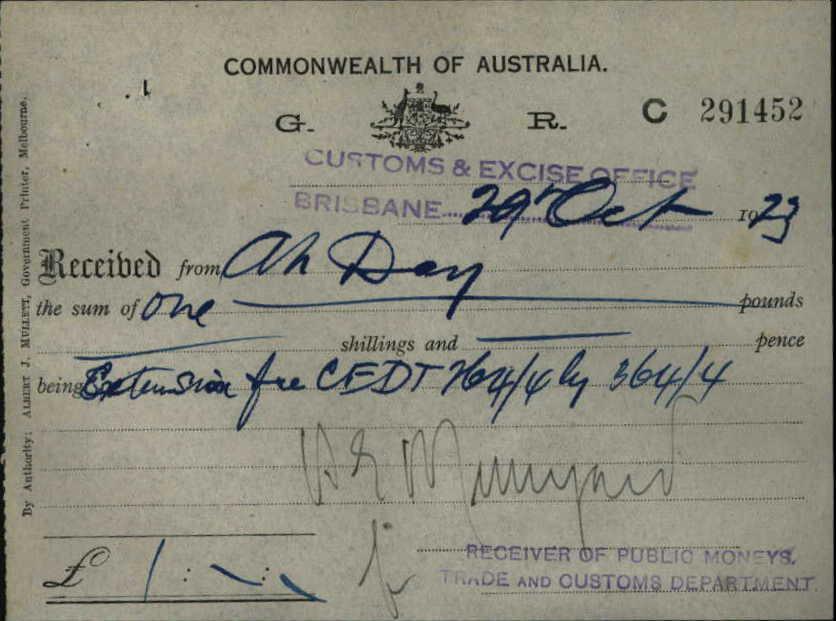 COMMONWEALTH OF AUSTRALIA.
G. R. C 291452
CUSTOMS & EXCISE OFFICE
BRISBANE 29th Oct 1923
Received from Ah Day
the sum of One pounds
shillings and pence
being Extension fee CEDT 364/4
£ 1 : - : -
for
RECEIVER OF PUBLIC MONEYS,
TRADE AND CUSTOMS DEPARTMENT
By Authority: ALBERT J. MULLETT, Government Printer, Melbourne.